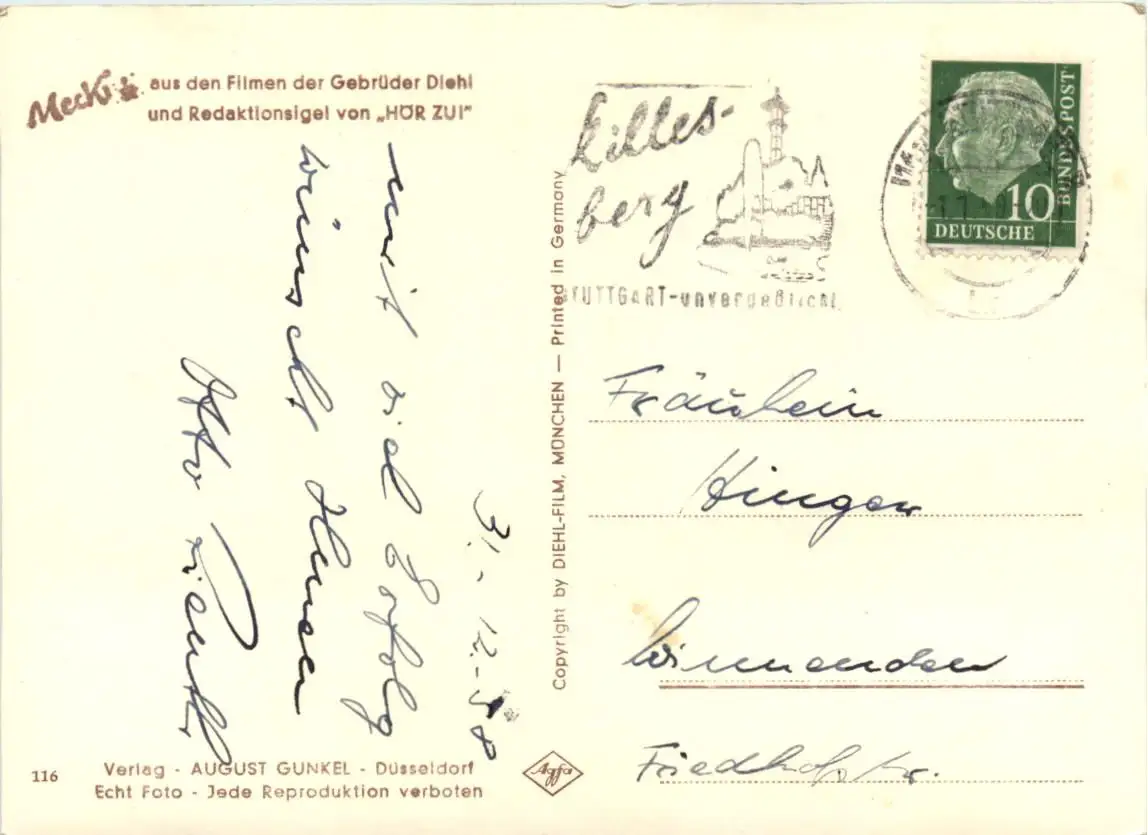 Mecki aus den Filmen der Gebrüder Diehl
und Redaktionsigel von „HÖR ZU!"
31.-12.-58
und viel Erfolg
wünscht Ihnen
Otto
116
Verlag - AUGUST GUNKEL - Düsseldorf
Echt Foto - Jede Reproduktion verboten
Agfa
Copyright by DIEHL-FILM, MÜNCHEN — Printed in Germany
killes-
berg
STUTTGART-unvergeßlich!
10
DEUTSCHE
BUNDESPOST
Fräulein
Winnenden
Friedhofstr.